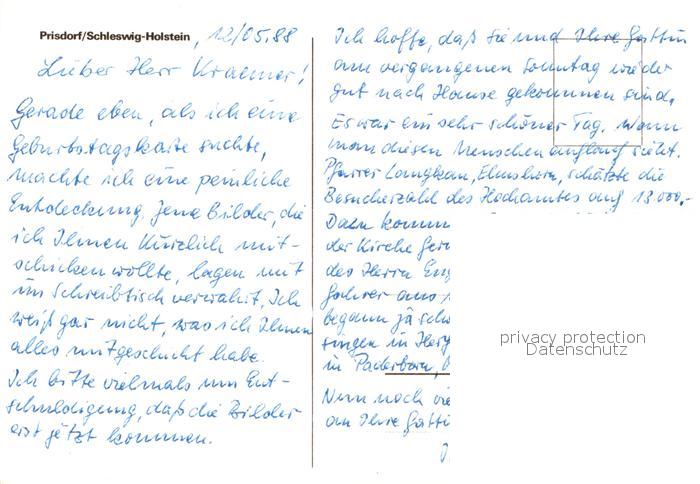 Prisdorf/Schleswig-Holstein , 12/05.88
Lieber Herr Kraemer!
Gerade eben, als ich eine
Geburtstagskarte suchte,
machte ich eine peinliche
Entdeckung. Jene Bilder, die
ich Ihnen kürzlich mit-
schicken wollte, lagen mit
im Schreibtisch verwahrt. Ich
weiß gar nicht, was ich Ihnen
alles mitgeschickt habe.
Ich bitte vielmals um Ent-
schuldigung, daß die Bilder
erst jetzt kommen.
Ich hoffe, daß Sie und Ihre Gattin
am vergangenen Sonntag wieder
gut nach Hause gekommen sind.
Es war ein sehr schöner Tag. Wenn
man diesen Menschen sieht.
Pfarrer Elmshorn, schätzte die
Besucherzahl des Hochamtes auf 13.000,-
Dazu komm
der Kirche
des Herrn
Fahrer aus
begann ja
singen in
in Paderborn,
Nun noch vie
an Ihre Gatti
privacy protection
Datenschutz